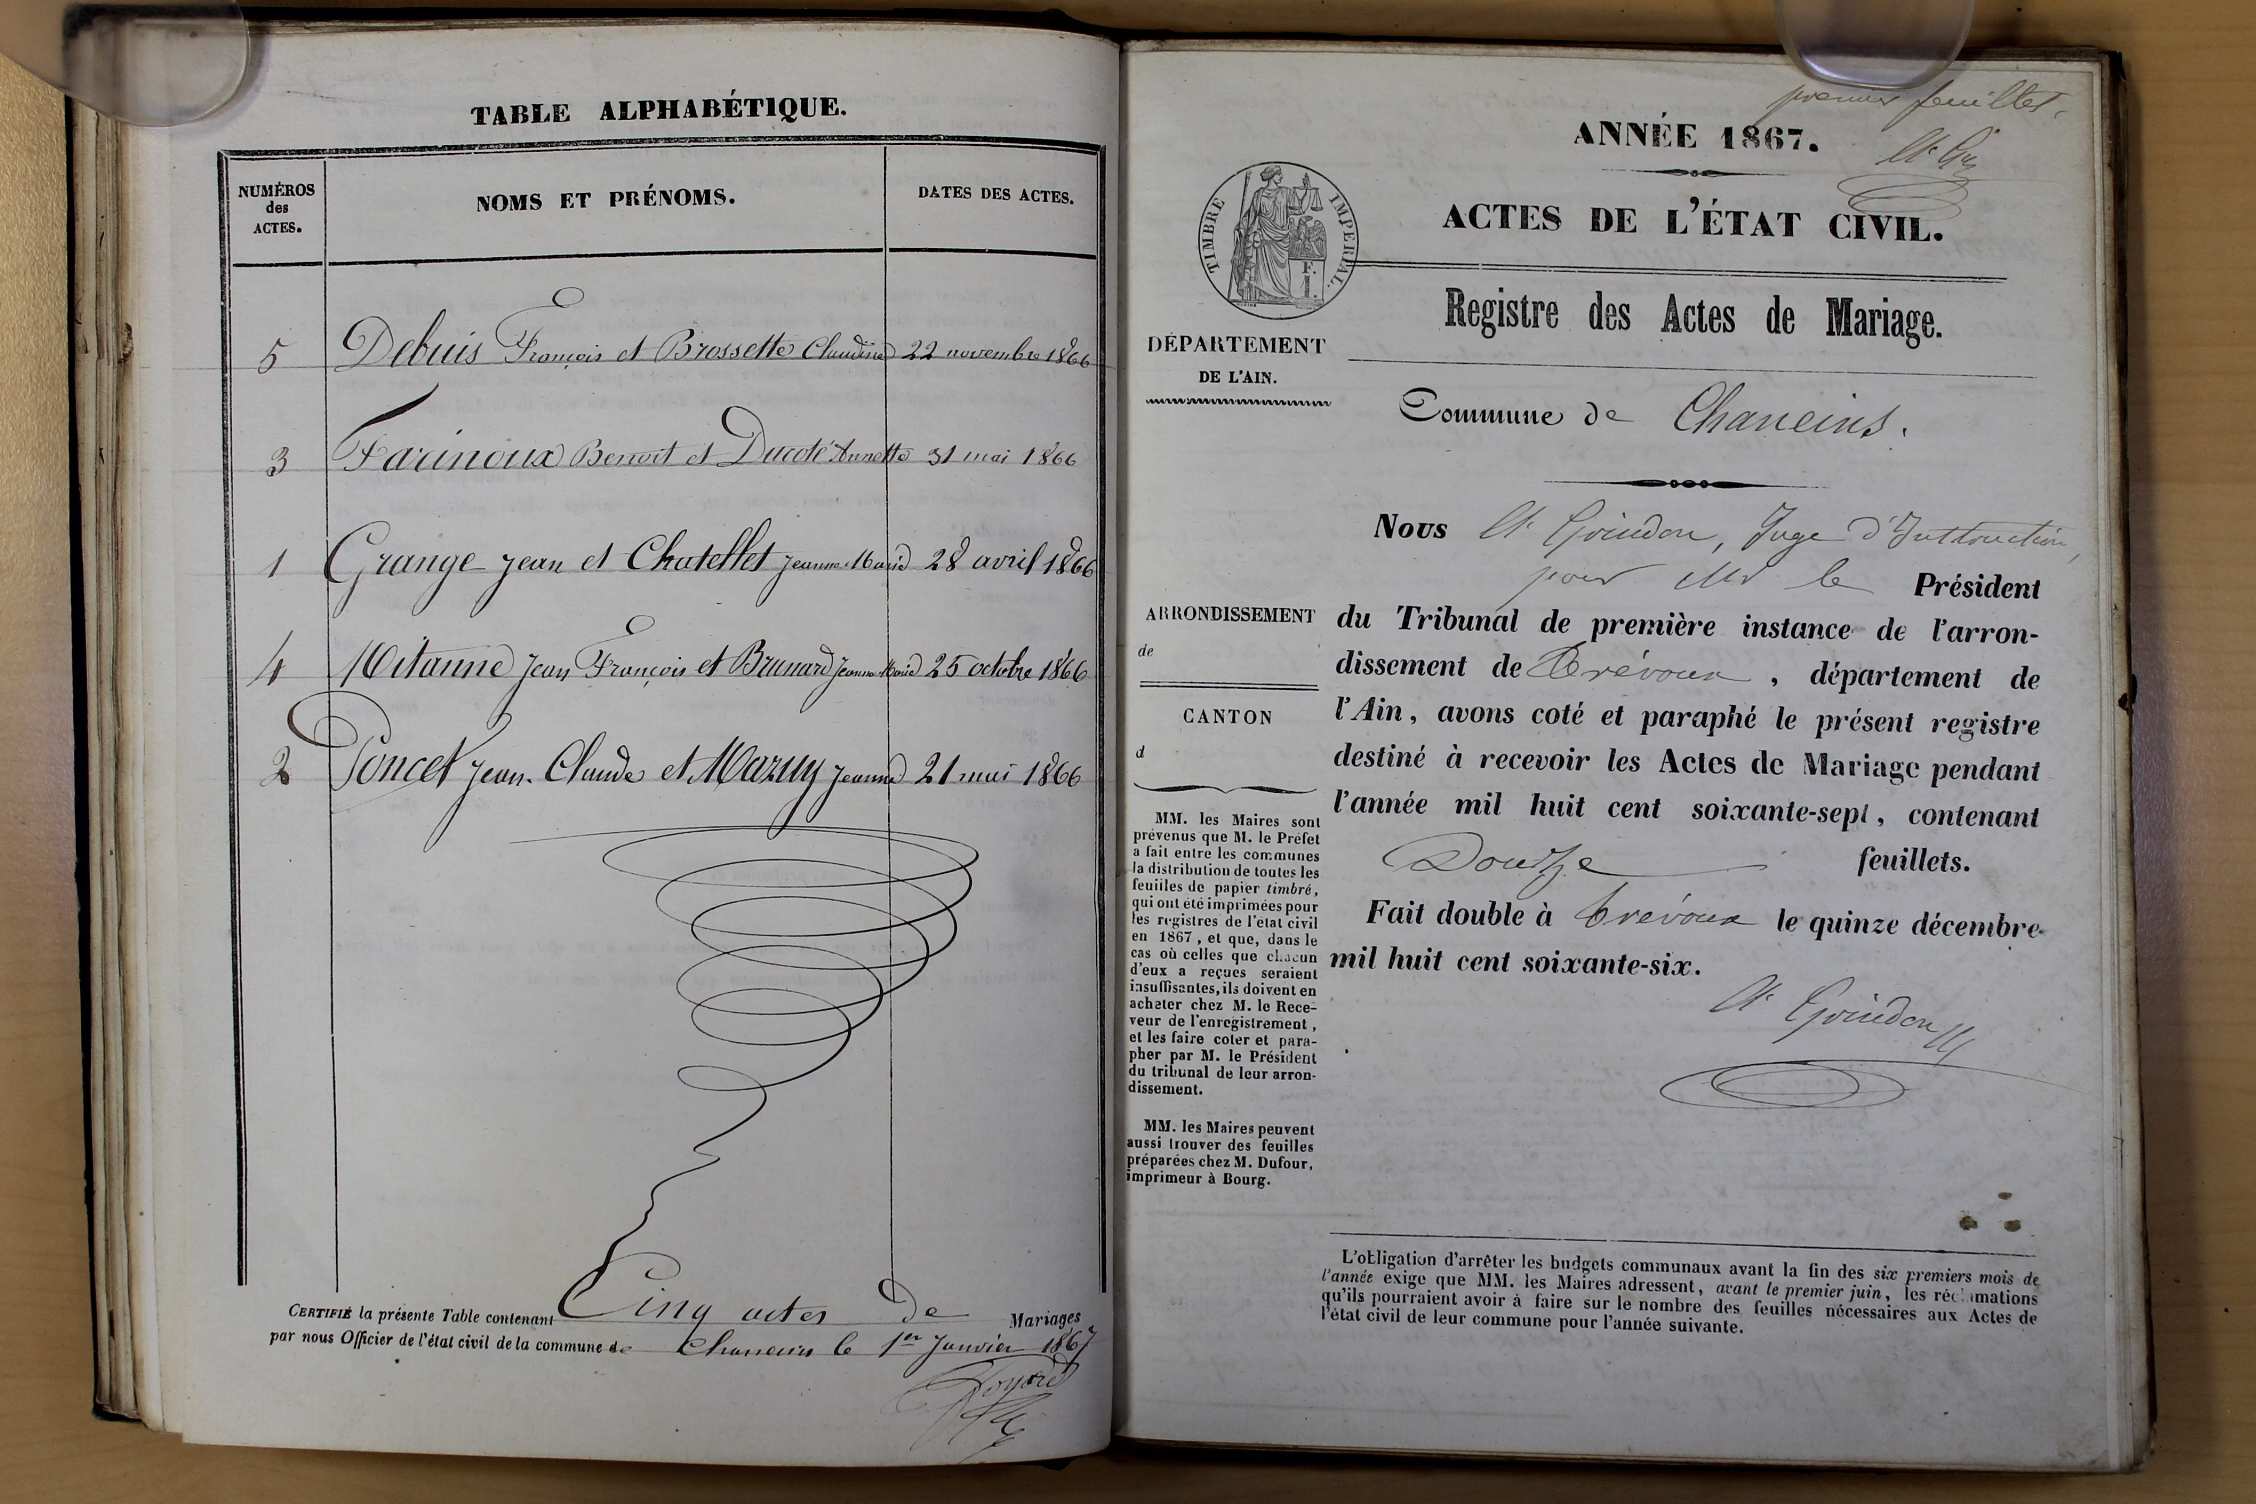 TABLE ALPHABÉTIQUE.
NUMÉROS
des
ACTES.
NOMS ET PRÉNOMS.
DATES DES ACTES.
5 Debuis François et Brossette Claudine 22 novembre 1866
3 Farinoux Benoit et Ducoté Annette 31 mai 1866
1 Grange Jean et Chatellet Jeanne Marie 28 avril 1866
4 Mitanne Jean François et Brunard Jeanne Marie 25 octobre 1866
2 Poncet Jean-Claude et Mazuy Jeanne 21 mai 1866
CERTIFIÉ la présente Table contenant Cinq actes de Mariages
par nous Officier de l'état civil de la commune de Chaneins le 1er Janvier 1867
premier feuillet.
ANNÉE 1867.
ACTES DE L'ÉTAT CIVIL.
TIMBRE IMPÉRIAL.
F.
1.
Registre des Actes de Mariage.
DÉPARTEMENT
DE L'AIN.
Commune de Chaneins.
ARRONDISSEMENT
de
CANTON
d
MM. les Maires sont
prévenus que M. le Préfet
a fait entre les communes
la distribution de toutes les
feuilles de papier timbré,
qui ont été imprimées pour
les registres de l'état civil
en 1867, et que, dans le
cas où celles que chacun
d'eux a reçues seraient
insuffisantes, ils doivent en
acheter chez M. le Rece-
veur de l'enregistrement,
et les faire coter et para-
pher par M. le Président
du tribunal de leur arron-
dissement.
MM. les Maires peuvent
aussi trouver des feuilles
préparées chez M. Dufour,
imprimeur à Bourg.
Nous Goindon, Juge d'Instruction,
pour Mr le Président
du Tribunal de première instance de l'arron-
dissement de Trévoux, département de
l'Ain, avons coté et paraphé le présent registre
destiné à recevoir les Actes de Mariage pendant
l'année mil huit cent soixante-sept, contenant
Douze feuillets.
Fait double à Trévoux le quinze décembre
mil huit cent soixante-six.
Goindon
L'obligation d'arrêter les budgets communaux avant la fin des six premiers mois de
l'année exige que MM. les Maires adressent, avant le premier juin, les réclamations
qu'ils pourraient avoir à faire sur le nombre des feuilles nécessaires aux Actes de
l'état civil de leur commune pour l'année suivante.